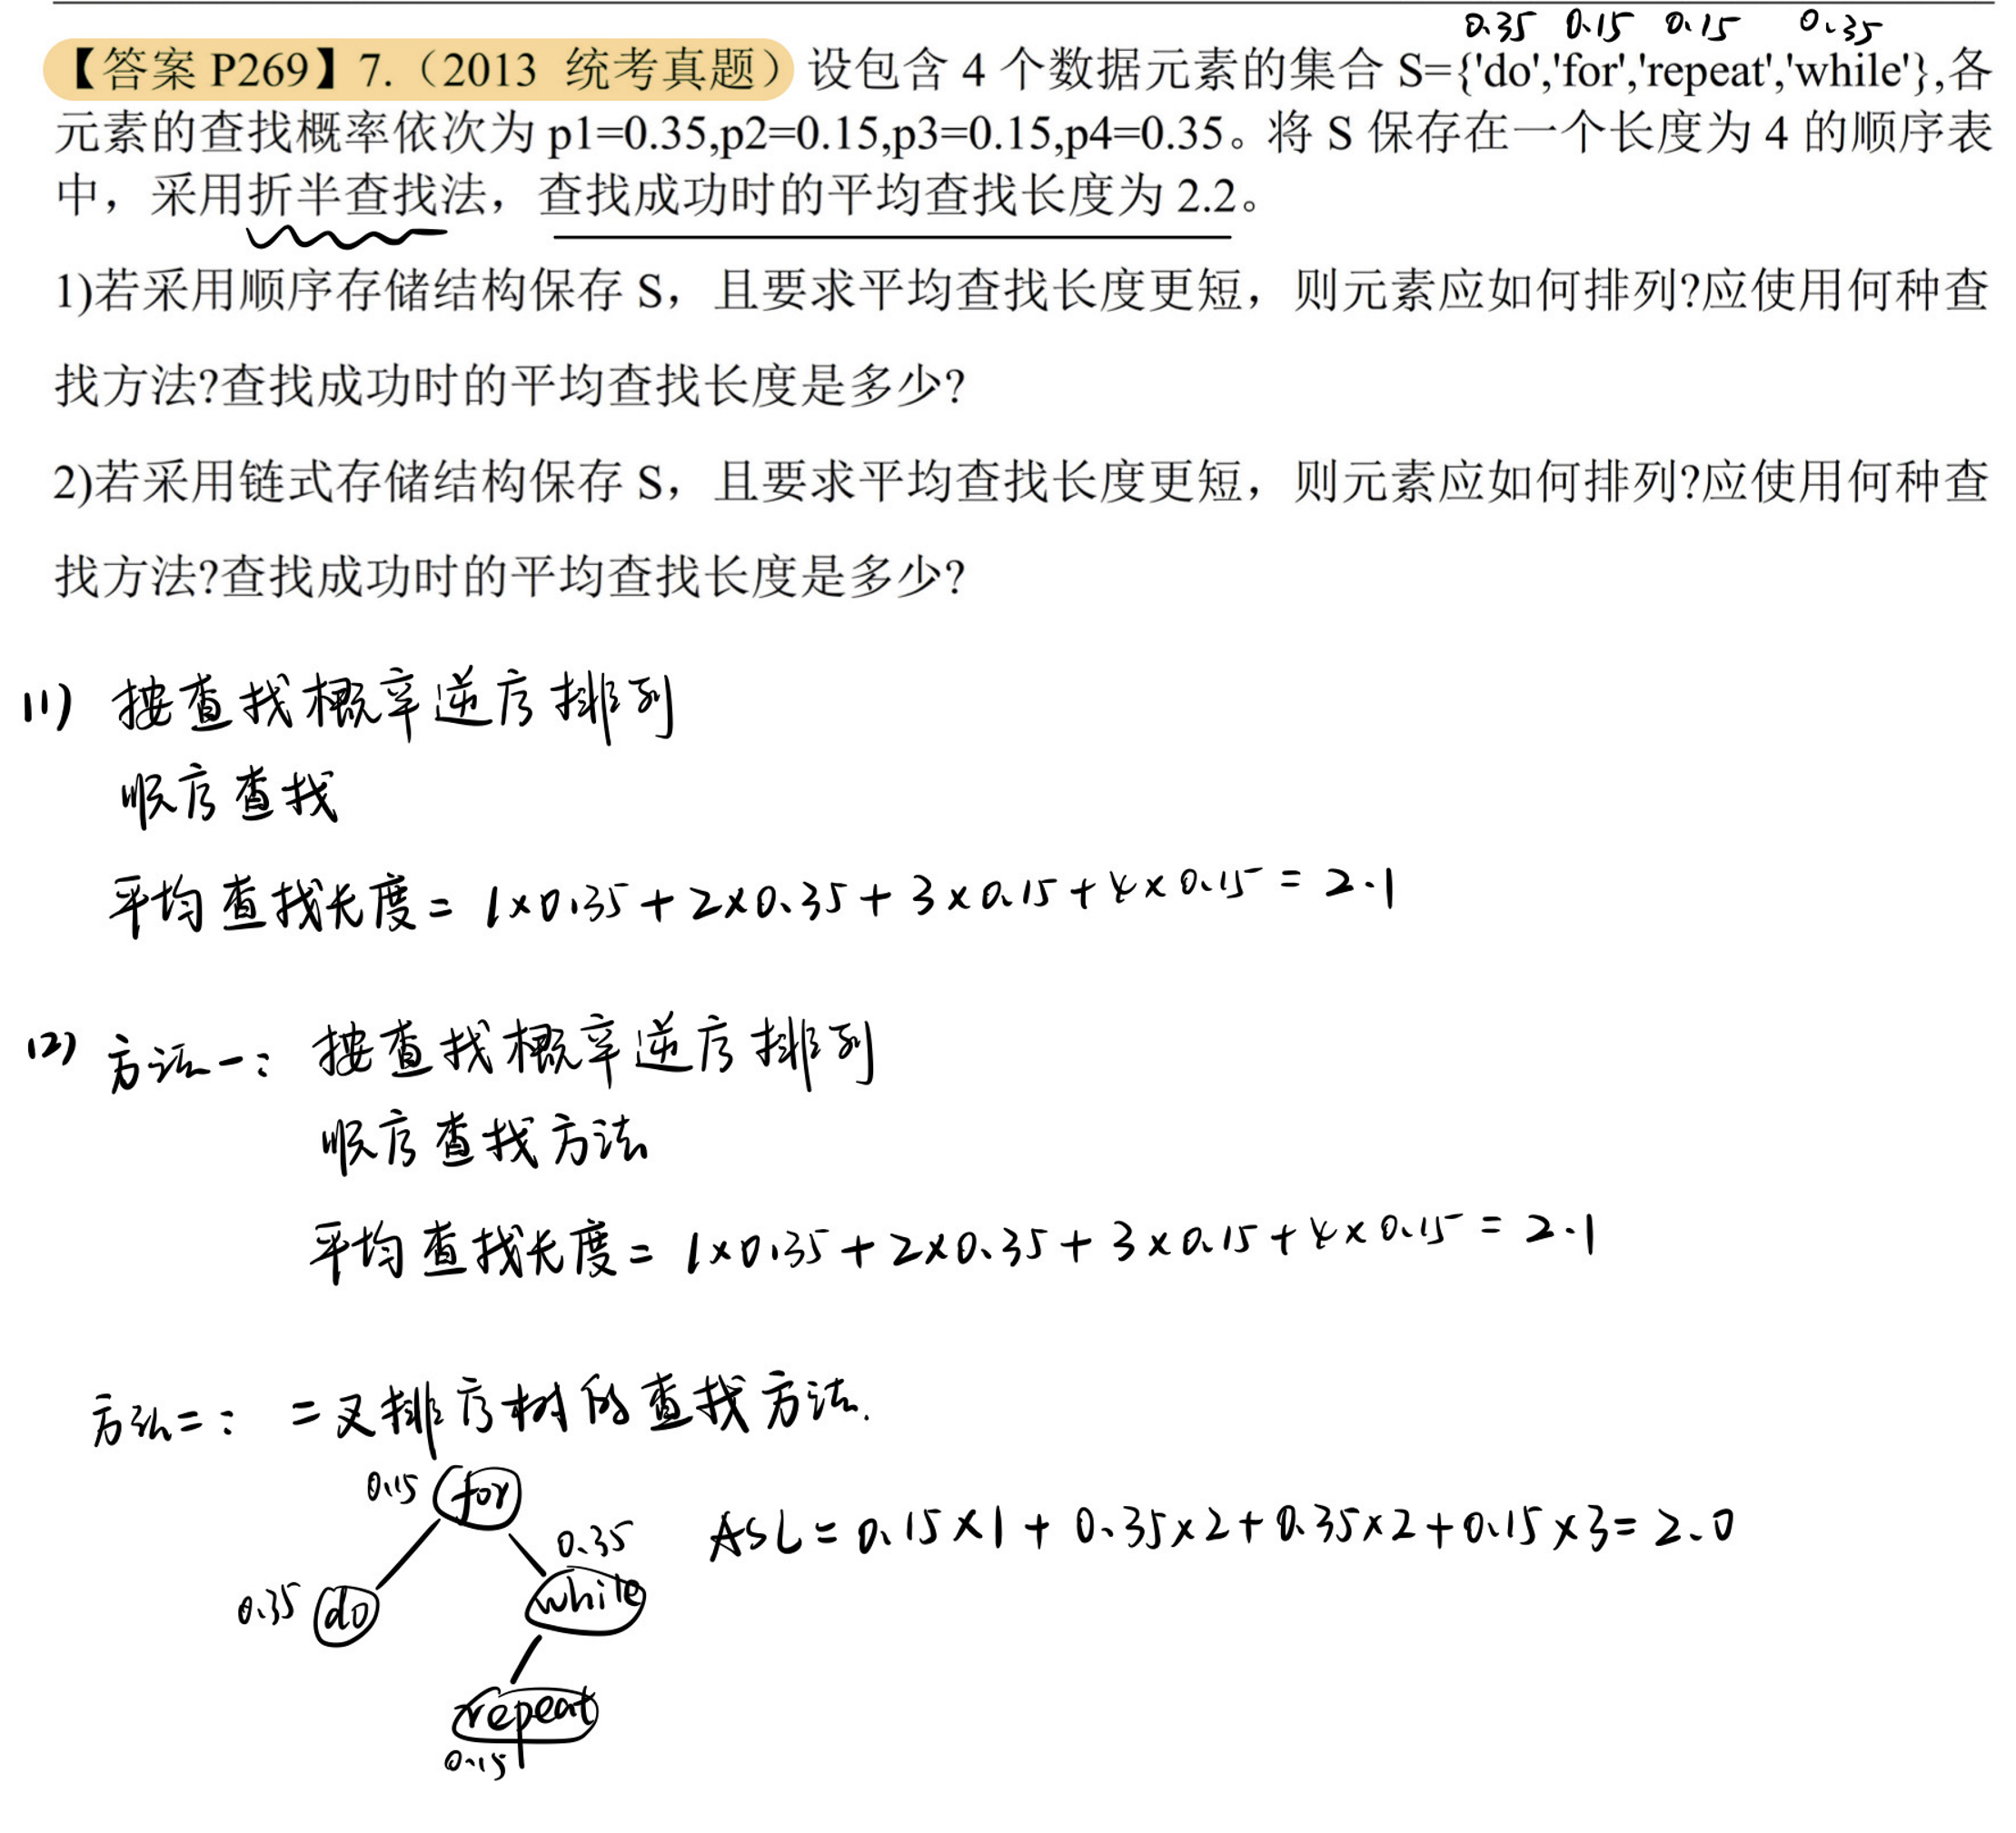 0.35 0.15 0.15 0.35
【答案 P269】7.（2013 统考真题）设包含 4 个数据元素的集合 S={'do','for','repeat','while'},各
元素的查找概率依次为 p1=0.35,p2=0.15,p3=0.15,p4=0.35。将 S 保存在一个长度为 4 的顺序表
中，采用折半查找法，查找成功时的平均查找长度为 2.2。
1)若采用顺序存储结构保存 S，且要求平均查找长度更短，则元素应如何排列?应使用何种查
找方法?查找成功时的平均查找长度是多少?
2)若采用链式存储结构保存 S，且要求平均查找长度更短，则元素应如何排列?应使用何种查
找方法?查找成功时的平均查找长度是多少?
(1) 按查找概率逆序排列
顺序查找
平均查找长度= 1×0.35+2×0.35+3×0.15+4×0.15=2.1
(2) 方法一： 按查找概率逆序排列
顺序查找方法
平均查找长度= 1×0.35+2×0.35+3×0.15+4×0.15=2.1
方法二： 二叉排序树的查找方法.
0.15 for
ASL=0.15×1+0.35×2+0.35×2+0.15×3=2.0
0.35
0.35 do while
repeat
0.15